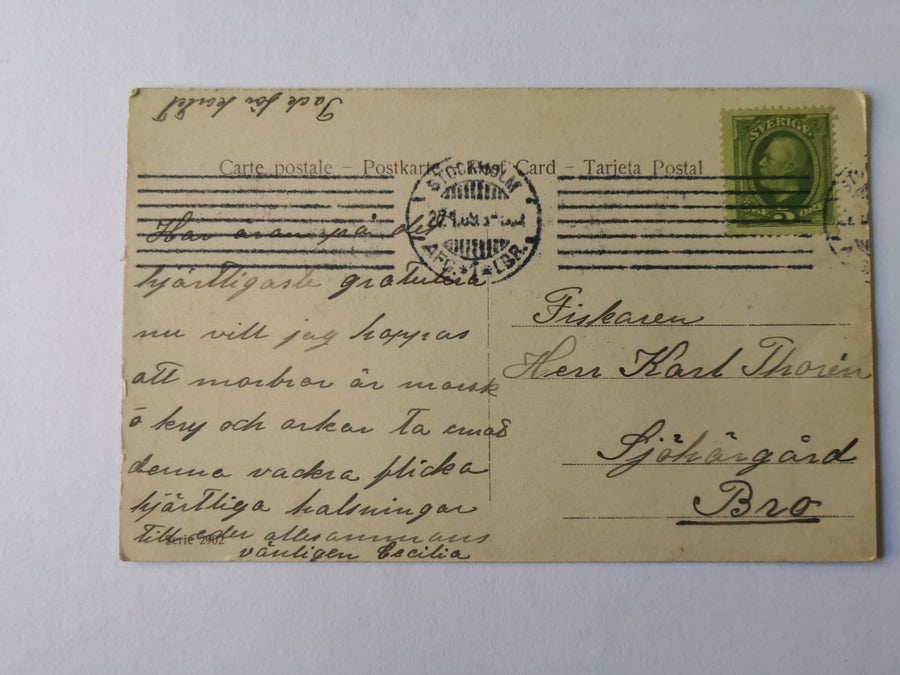 Tack för kortet
Carte postale – Postkarte – Post Card – Tarjeta Postal
SVERIGE
5 ÖRE
STOCKHOLM
AFG. * 1 * LBR.
Har äran på det
hjärtligaste gratulera
nu vill jag hoppas
att morbror är morsk
o kry och orkar ta emot
denna vackra flicka
hjärtliga halsningar
till eder allesammans
vänligen Cecilia
Serie 2962
Fiskaren
Herr Karl Thorén
Sjöhärgård
Bro